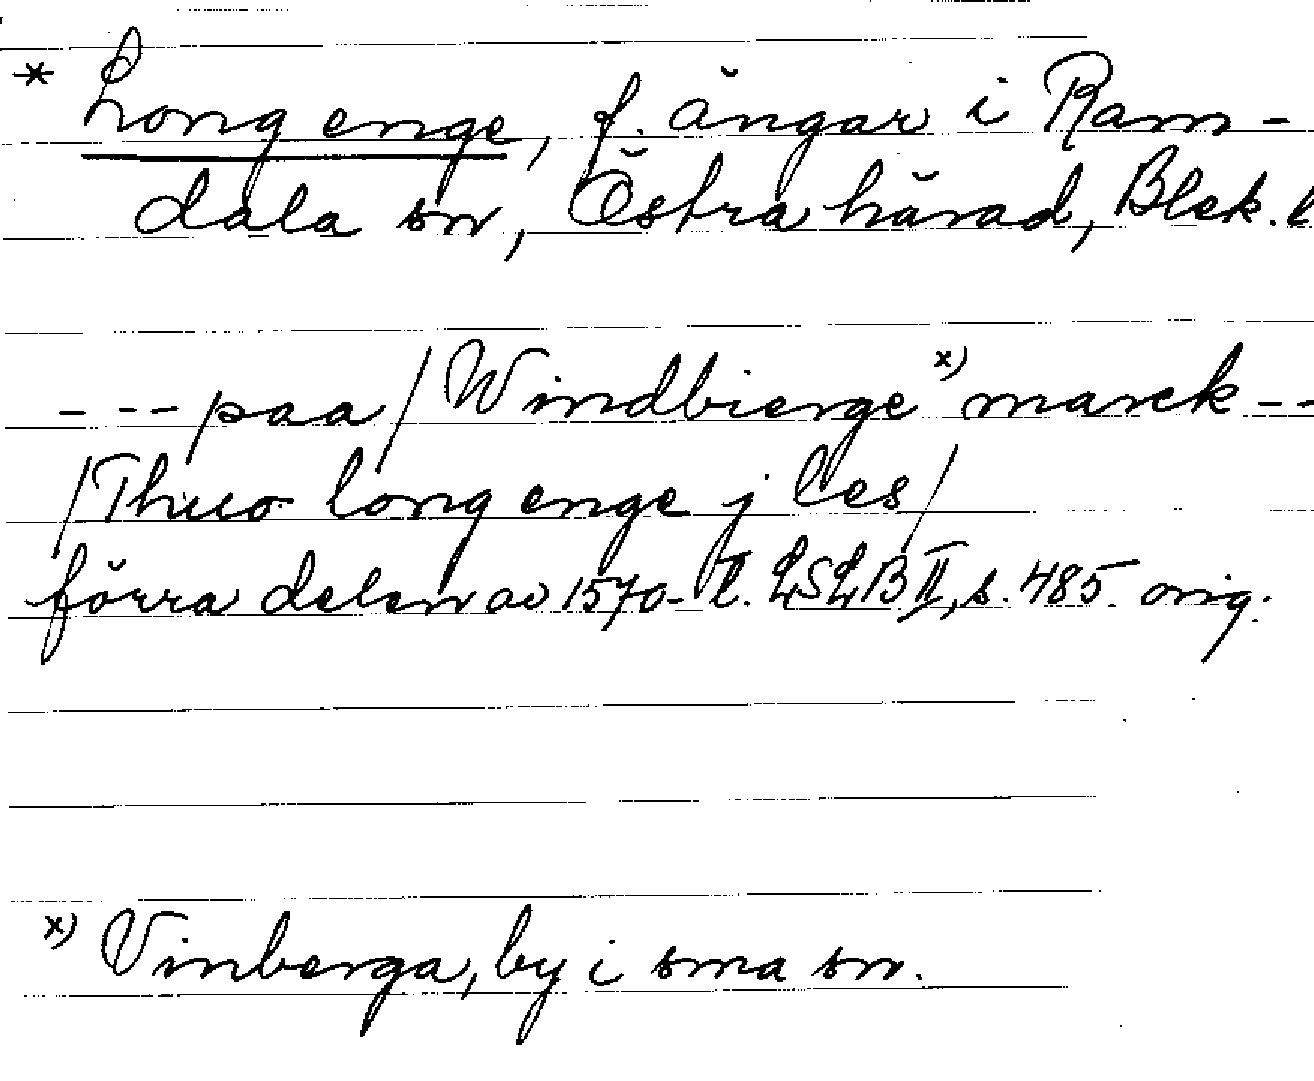 * Long enge, f. ängar i Ram-
dala sn, Östra härad, Blek. l
--- paa / Windbierge x) marck --
/ Thuo long enge j les /
förra delen av 1570-t. LSLB II, s. 485 orig.
x) Vinberga, by i sma sn.